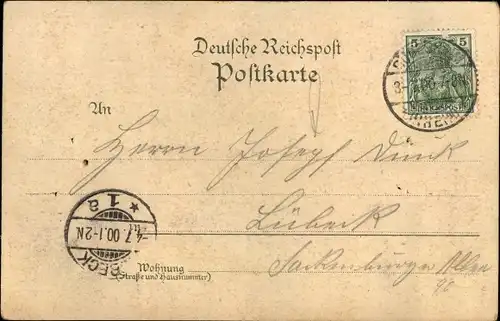 Deutsche Reichspost
Postkarte
5 5
An
Herrn Joseph
Lübeck
Wohnung
(Straße und Hausnummer)
Fackenburger Allee
* 1 a
4.7.00.1-2N
BECK